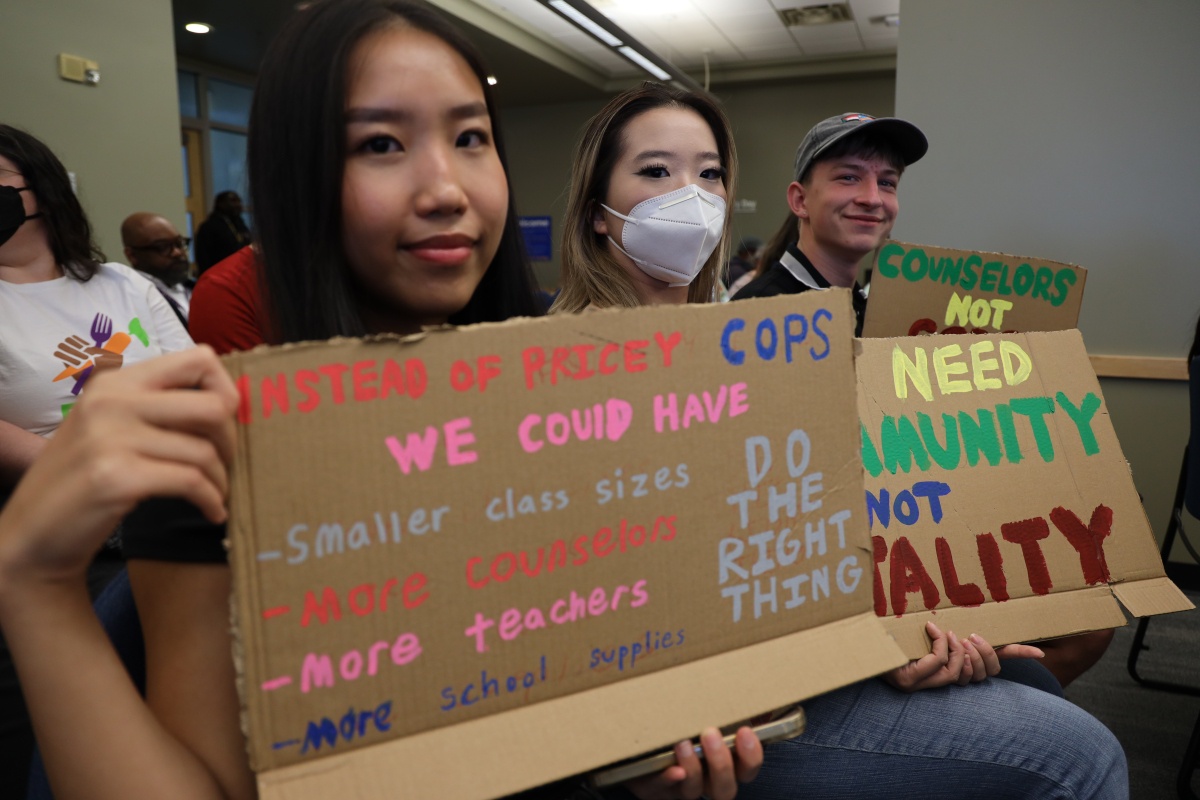 INSTEAD OF PRICEY COPS
WE COULD HAVE
-Smaller class sizes
-MORE COUNSELORS
-MORE teachers
-MORE school supplies
DO
THE
RIGHT
THING
COUNSELORS
NOT
NEED
MUNITY
NOT
TALITY